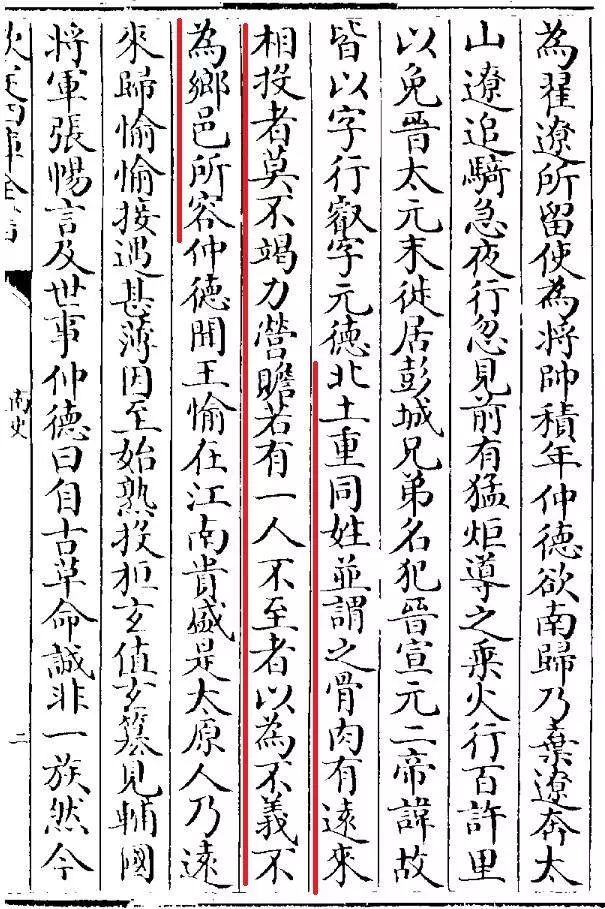 為翟遼所留使為將帥積年仲徳欲南歸乃棄遼奔太
山遼追騎急夜行忽見前有猛炬導之乗火行百許里
以免晉太元末徙居彭城兄弟名犯晉宣元二帝諱故
皆以字行叡字元徳北土重同姓並謂之骨肉有逺來
相投者莫不竭力營贍若有一人不至者以為不義不
為鄉邑所容仲徳聞王愉在江南貴盛是太原人乃逺
來歸愉愉接遇甚薄因至姑熟投桓玄值玄簒見輔國
將軍張暢言及世事仲徳曰自古革命誠非一族然今
欽定四庫全書
南史
二